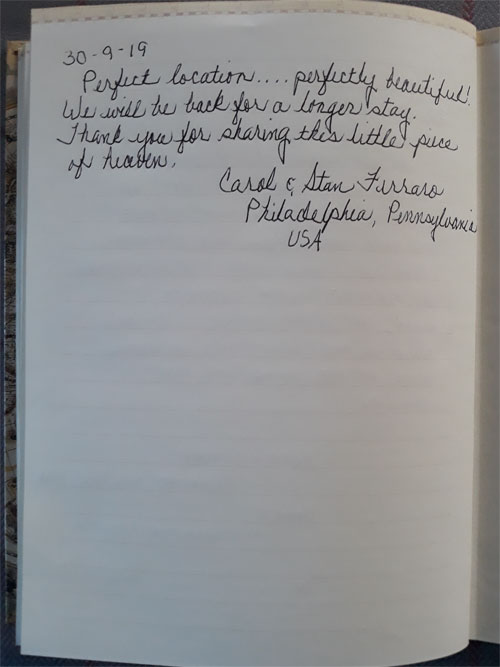 30-9-19
Perfect location.... perfectly beautiful!
We will be back for a longer stay.
Thank you for sharing this little piece
of heaven.
Carol & Stan Ferraro
Philadelphia, Pennsylvania
USA